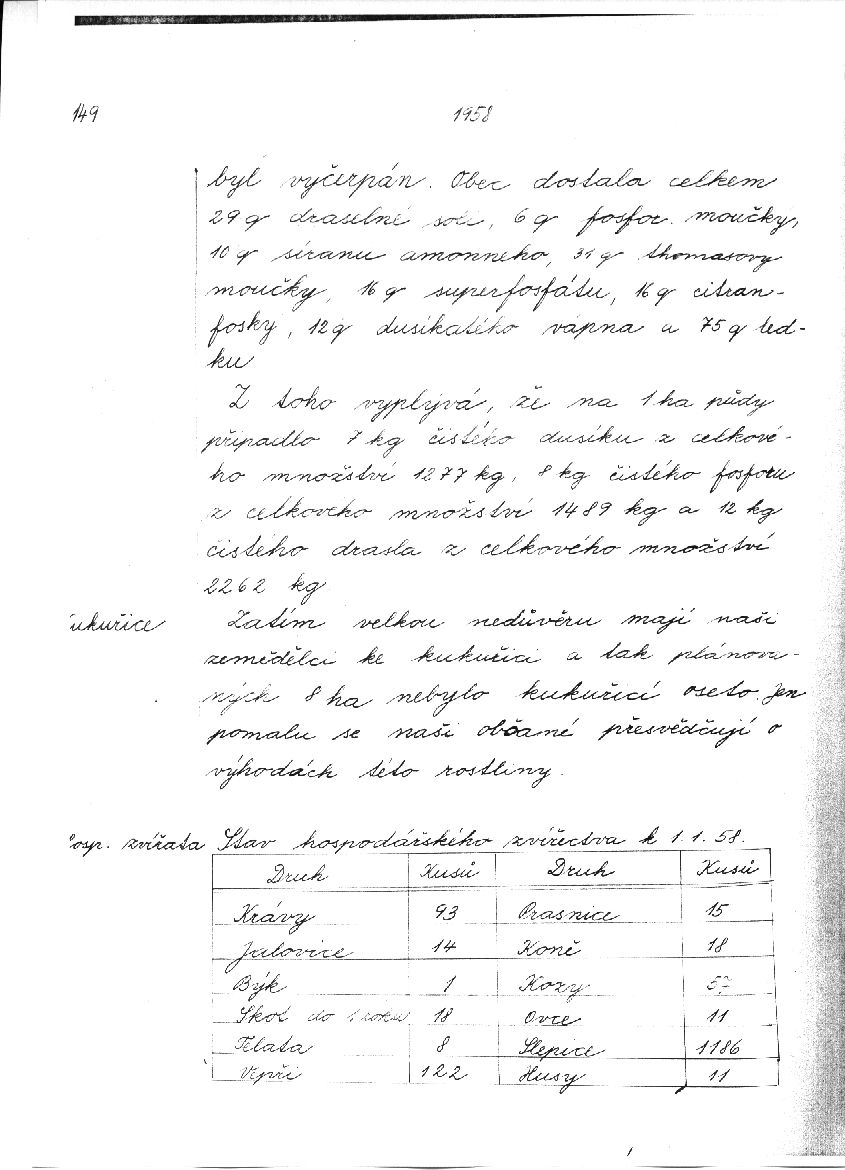 149 1958
byl vyčerpán. Obec dostala celkem
29 q draselné soli, 6 q fosfor. moučky,
10 q síranu amonneho, 31 q thomasovy
moučky, 16 q superfosfátu, 16 q citran-
fosky, 12 q dusíkatého vápna a 75 q led-
ku
Z toho vyplývá, že na 1 ha půdy
připadlo 7 kg čistého dusíku z celkové-
ho množství 1277 kg, 8 kg čistého fosforu
z celkového množství 1489 kg a 12 kg
čistého drasla z celkového množství
2262 kg
ukuřice Zatím velkou nedůvěru mají naši
zemědělci ke kukuřici a tak plánova-
ných 8 ha nebylo kukuřicí oseto. Jen
pomalu se naši občané přesvědčují o
výhodách této rostliny.
osp. zvířata Stav hospodářského zvířectva k 1.1.58.
Druh Kusů Druh Kusů
Krávy 93 Prasnice 15
Jalovice 14 Koně 18
Býk 1 Kozy 57
Skot do 1 roku 18 Ovce 11
Telata 8 Slepice 1186
Vepři 122 Husy 11